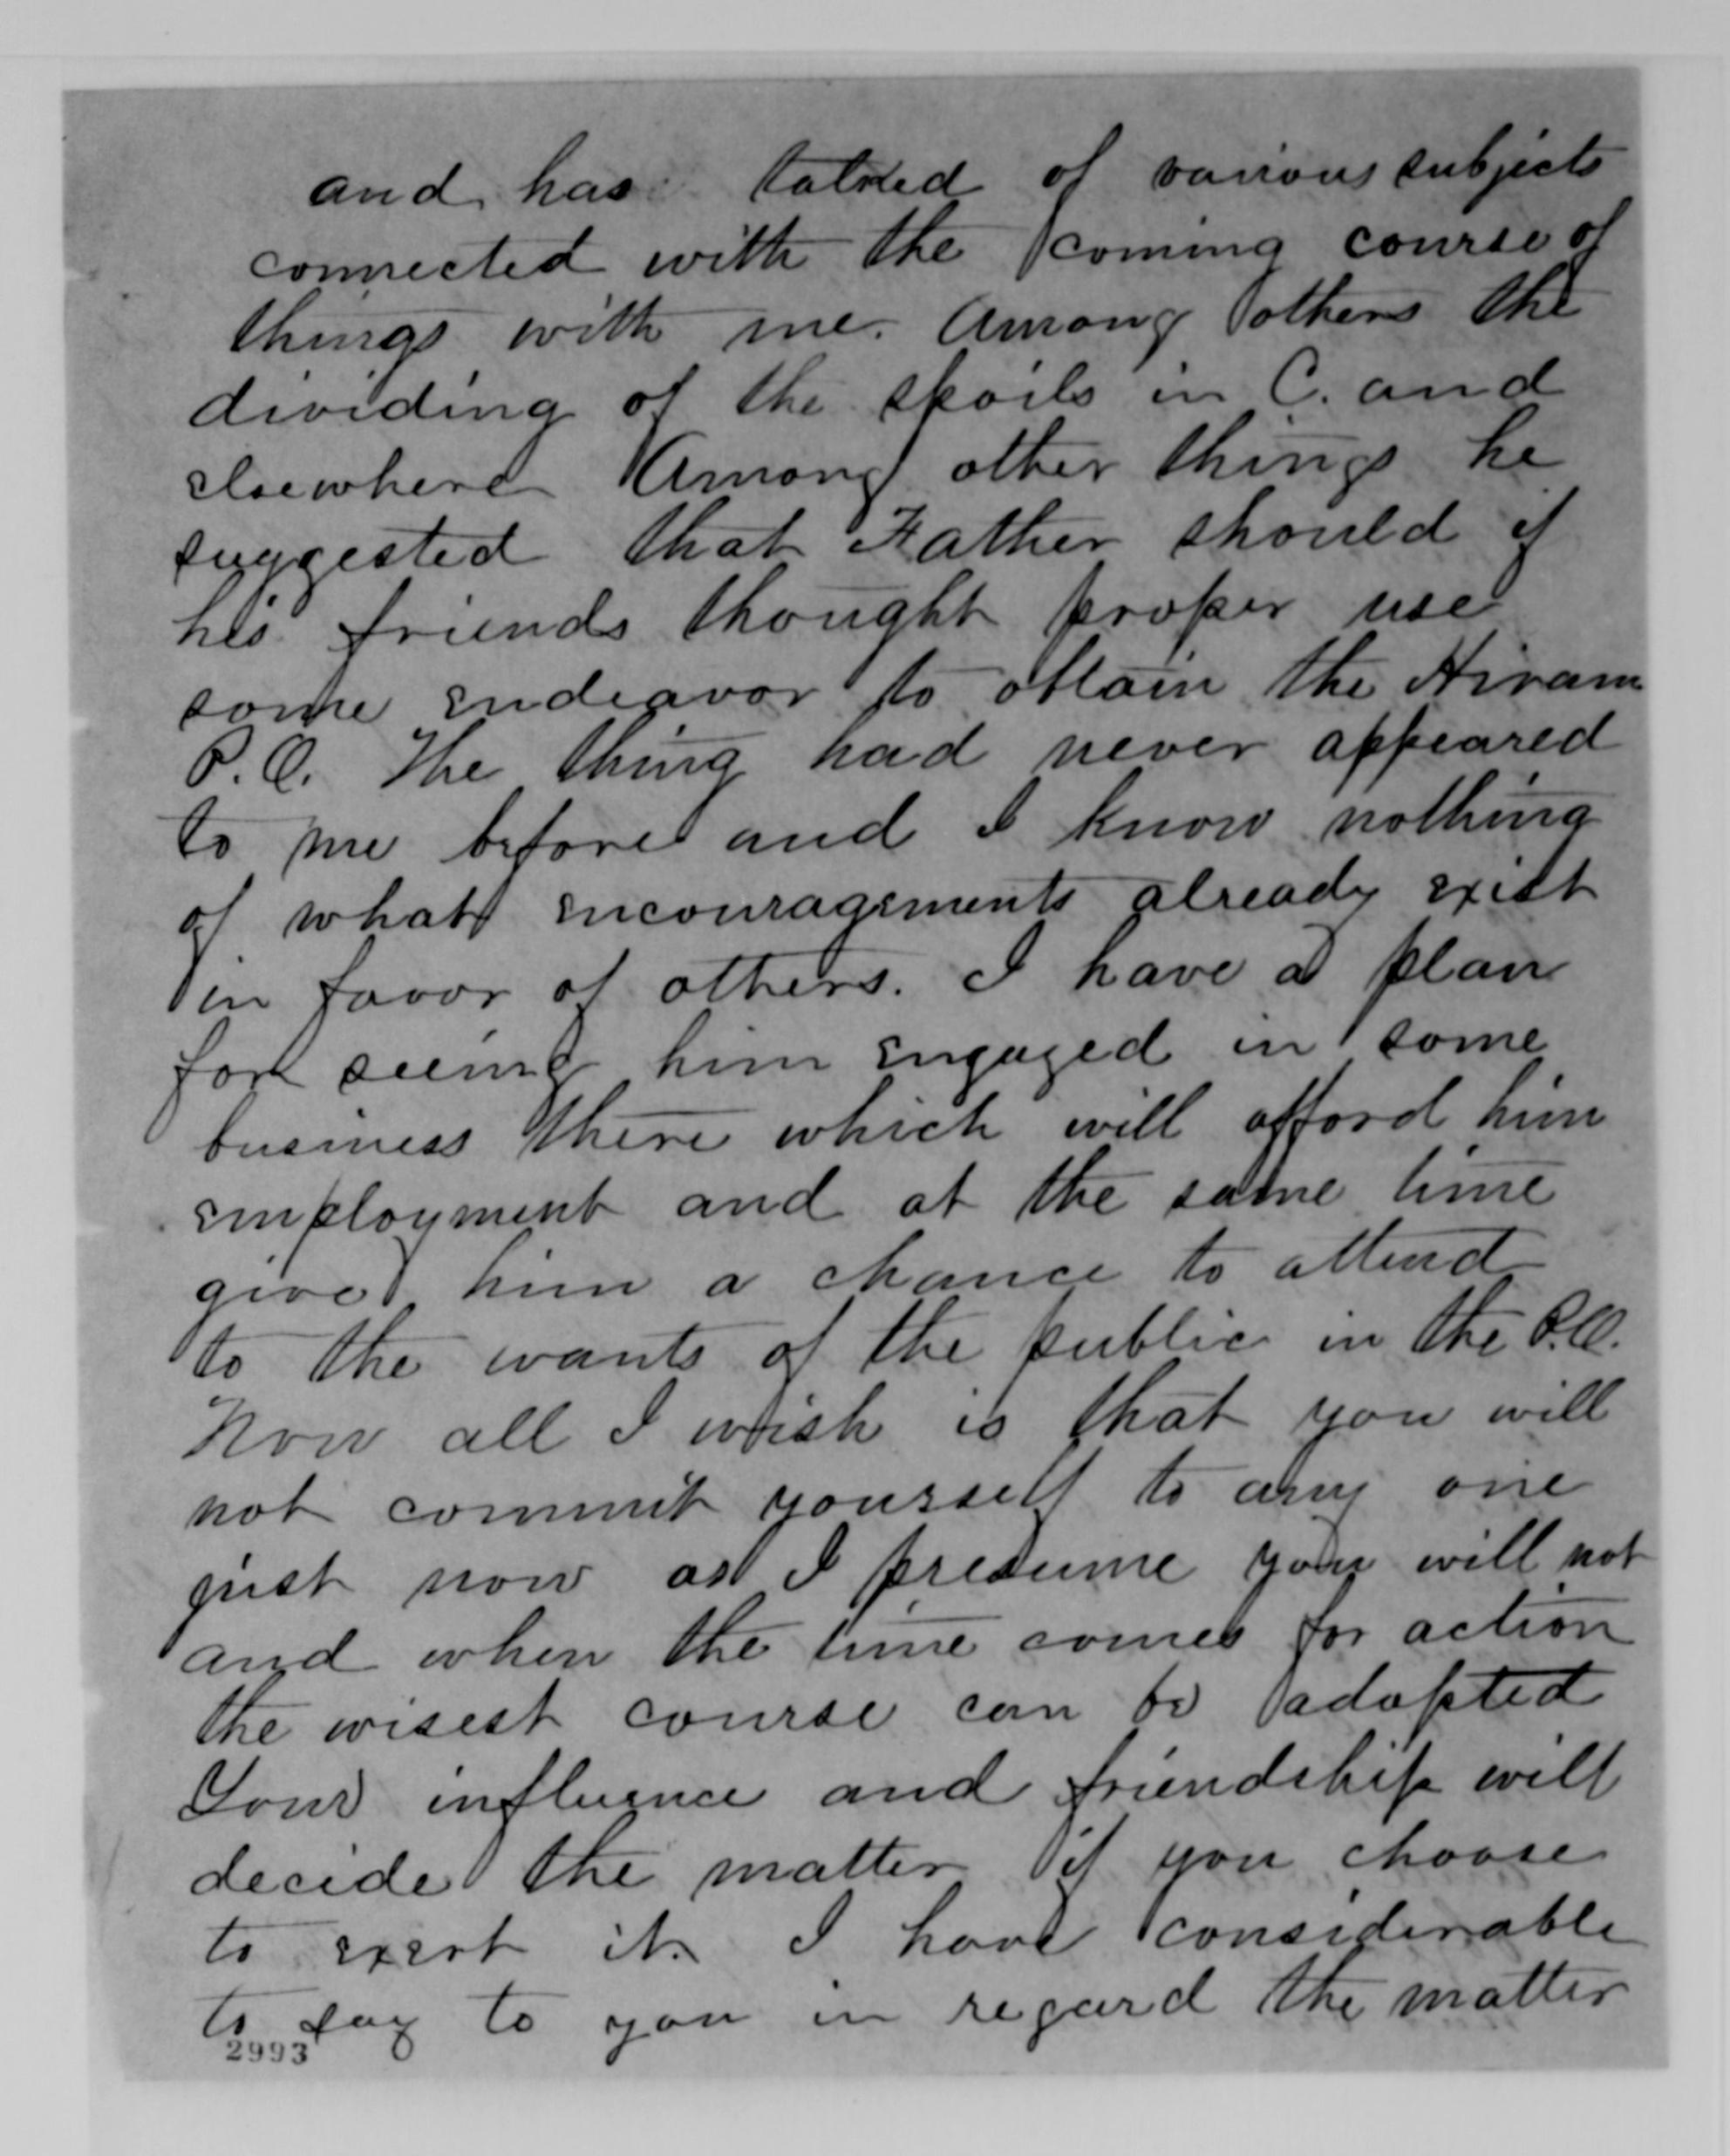 and has talked of various subjects
connected with the coming course of
things with me. Among others the
dividing of the spoils in C. and
elsewhere Among other things he
suggested that Father should if
his friends thought proper use
some endeavor to obtain the Hiram
P.O. The thing had never appeared
to me before and I know nothing
of what encouragements already exist
in favor of others. I have a plan
for seeing him engaged in some
business there which will afford him
employment and at the same time
give him a chance to attend
to the wants of the public in the P.O.
Now all I wish is that you will
not commit yourself to any one
just now as I presume you will not
and when the time comes for action
the wisest course can be adopted
Your influence and friendship will
decide the matter if you choose
to exert it. I have considerable
to say to you in regard the matter
2993